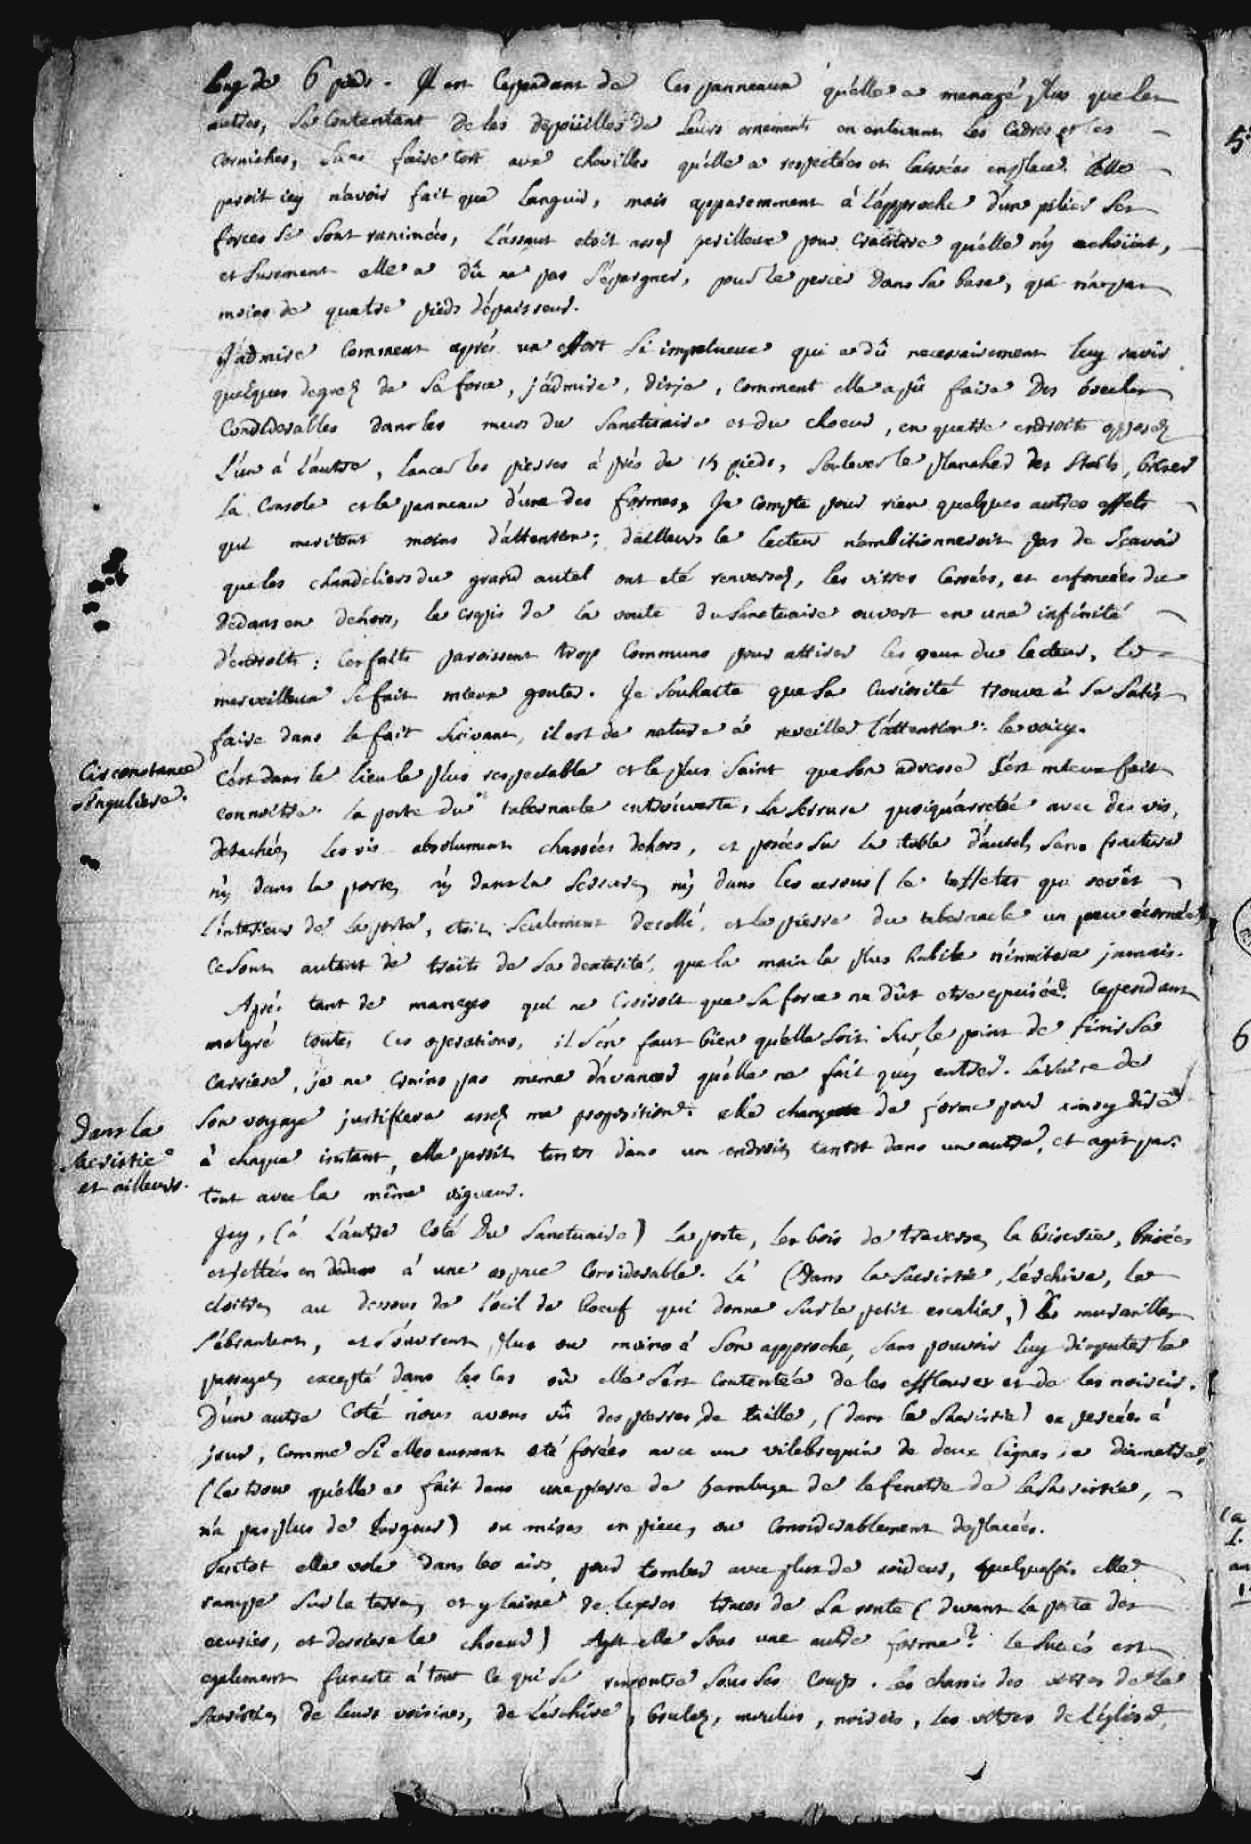 long de 6 pieds. Il est Cependant de Ces panneaux qu'elle a menagé plus que les
autres, Se Contentant de les dépoüiller de Leurs ornements en enlevant les Cadres et les
Corniches, Sans faire tort aux chevilles qu'elle a respectées et laissées en place. Elle
paroit icy n'avoir fait que Languir, mais apparemment à l'approche d'un pilier Ses
forces Se Sont ranimées, L'assaut etoit assez perilleux pour craindre qu'elle n'y echoüat,
et Surement elle a dû ne pas S'épargner, pour le percer Dans Sa base, qui n'a pas
moins de quatre pieds d'épaisseur.
J'admire Comment aprés un effort Si impetueux qui a dû necessairement luy ravir
quelques degrez de Sa force, j'admire, disje, comment elle a pû faire Des breches
Considerables dans les murs du Sanctuaire et du choeur, en quatre endroits opposez
L'un à l'autre, lancer les pierres à prés de 15 pieds, Soulever le plancher des Stals, briser
La Console et le panneau d'une des formes, Je Compte pour rien quelques autres effets
qui meritent moins d'attention; d'ailleurs le Lecteur n'ambitionneroit pas de Sçavoir
que les chandeliers du grand autel ont eté renversez, les vitres Cassées, et enfoncées du
Dedans en dehors, le crepis de la voute du Sanctuaire ouvert en une infinité
d'endroits : Ces faits paroissent trop Communs pour attirer les yeux du Lecteur, Le
merveilleux Se fait mieux gouter. Je Souhaite que Sa Curiosité trouve à Se Satis
faire dans le fait Suivant, il est de nature à reveiller l'attention : le voicy.
Circonstance
Singuliere.
C'est dans le Lieu le plus respectable et le plus Saint que Son adresse S'est mieux fait
connoitre. La porte du tabernacle entr'ouverte, La Serrure quoiqu'arretée avec des vis,
Detachée, Les vis absolument chassées dehors, et posées Sur la table d'autel, Sans fracture
n'y dans la porte, n'y dans la Serrure, n'y dans les ressorts (le taffetas qui revêt
l'interieur de La porte, etoit Seulement decollé, et la pierre du tabernacle un peu écornée)
Ce Sont autant de traits de Sa dexterité, que la main la plus habile n'imitera jamais.
Aprés tant de maneges qui ne Croiroit que Sa force ne dût etre epuisée? Cependant
malgré toutes Ces operations, il S'en faut bien qu'elle Soit Sur le point de finir Sa
Carriere, je ne Crains pas meme d'avancer qu'elle ne fait qu'y entrer. La Suite de
Son voyage justifiera assez ma proposition. elle change de forme pour ainsy dire
Dans la
Sacristie
et ailleurs.
à chaque instant, elle paroit tantôt dans un endroit, tantôt dans un autre, et agit par
tout avec la même vigueur.
Icy, (à L'autre Coté Du Sanctuaire) La porte, les bois de traverse, la boiserie, brisées
et jettées en dedans à une espace Considerable. Là (Dans la Sacristie, L'archive, le
cloitre, au dessous de l'oeil de boeuf qui donne Sur le petit escalier,) Les murailles
S'ébranlent, et S'ouvrent plus ou moins à Son approche, Sans pouvoir Luy disputer le
passage, excepté dans les Cas où elle S'est Contentée de les effleurer et de les noircir.
D'un autre Coté nous avons vû des pierres de taille, (dans la Sacristie) ou percées à
jour, comme Si elles eussent eté forées avec un vilebrequin de deux Lignes de diametre,
(le trou qu'elle a fait dans une pierre de jambage de la fenetre de La Sacristie,
n'a pas plus de Largeur) ou mises en pieces, ou Considerablement deplacées.
Tantot elle vole dans les airs, pour tomber avec plus de roideur, quelquefois elle
rampe Sur la terre, et y laisse de legeres traces de La route (Devant La porte des
ecuries, et derriere le choeur) Agit elle Sous une autre forme? Le Succés est
egalement funeste à tout Ce qui Se rencontre Sous Ses Coups. Les chassis des vitres de la
Sacristie, de leurs voisines, de L'archive, brulez, moulus, noircis, les vitres de L'église,